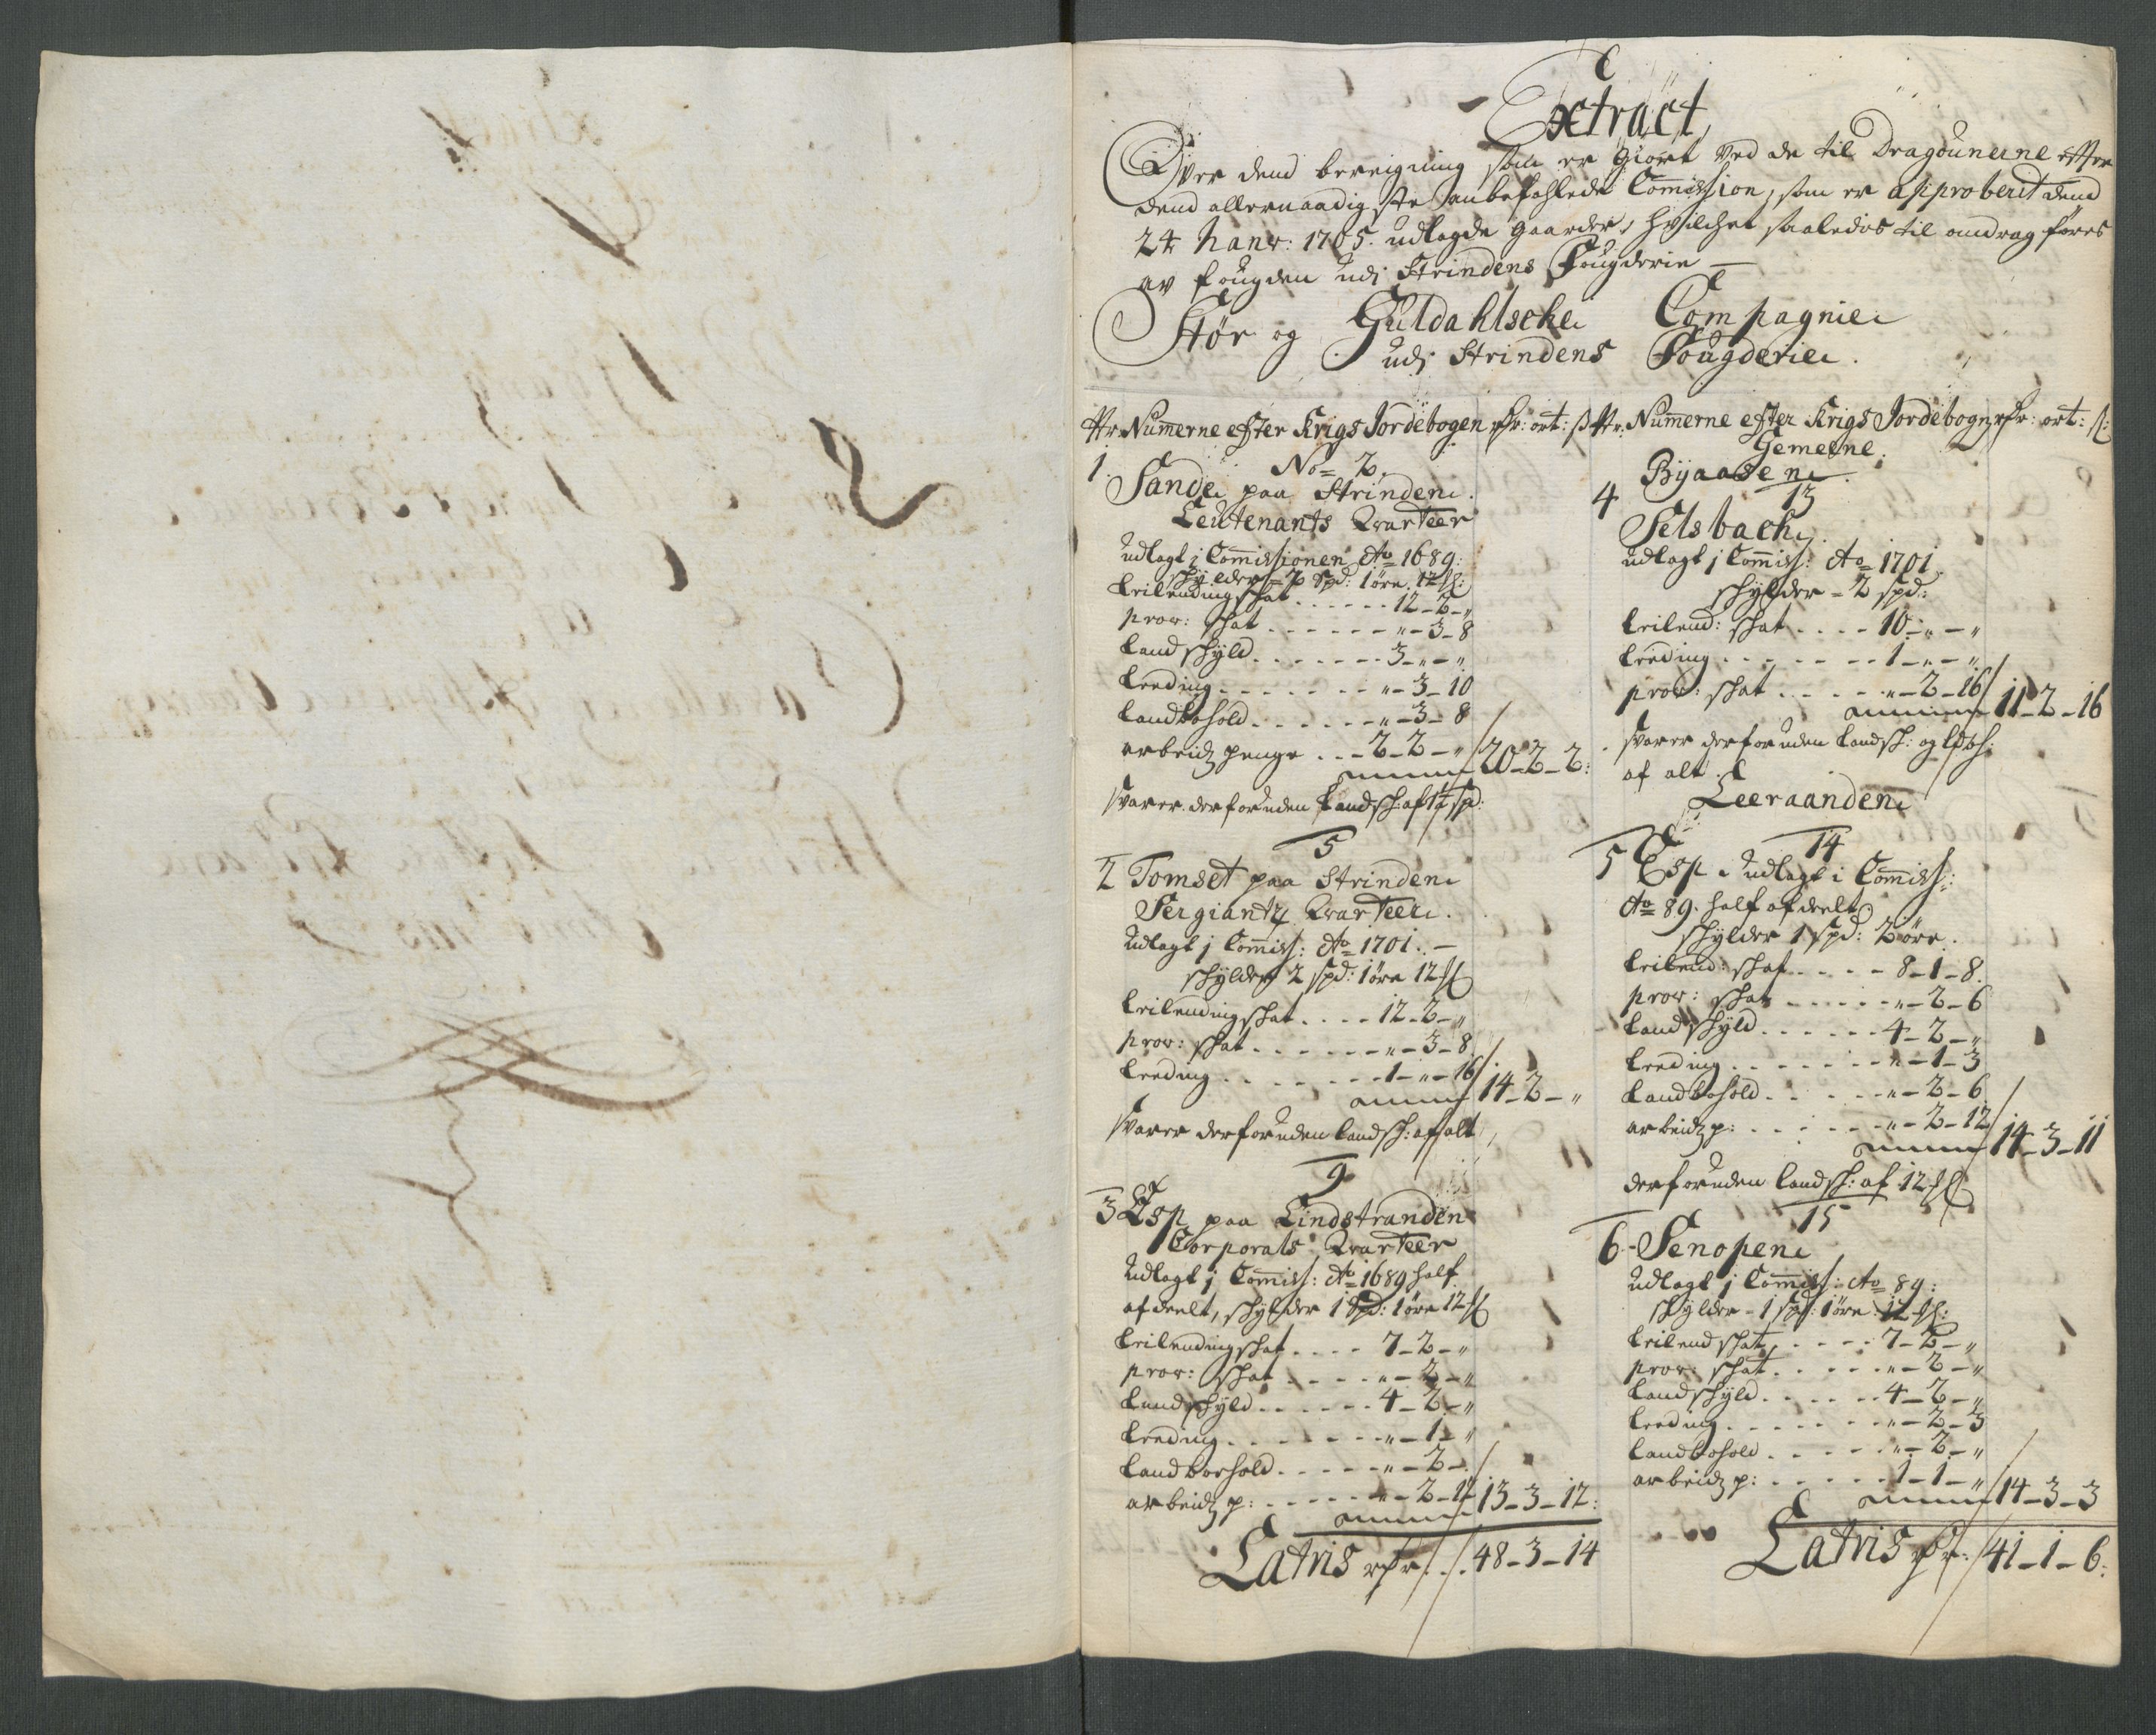 Extract
Over dend beregning som er giort ved de til Dragounerne efter
dend allernaadigste anbefahlede Commission, som er approberet dend
24 Janr: 1705. udlagde gaarder, hvilchet saaledis til andrag føres
av fougden udj Strindens Fougderie
Stør og Guldahlsche Compagnie
udj Strindens Fougderie.
Nr: Numerne efter Krigs Jordebogen rdr: ort: s
No= 2.
1. Sande paa Strinden.
Leutenants Qvarteer
udlagt j Commissionen Ao 1689:
schylder = 2 spd: 1 øre 12 sl:
Leilendingschat . . . . . . 12 - 2 - "
prov: schat . . . . . . . " - 3 - 8
Landschyld . . . . . . . 3 - " - "
Leeding . . . . . . . . " - 3 - 10
Landbohold . . . . . . . " - 3 - 8
arbeidz penge . . . 2 - 2 - " 20 - 2 - 2:
svarer derforuden Landsch: af 1½ spd:
5
2 Tomset paa Strinden
Sergiantz Qvarteer.
udlagt j Commiss: Ao 1701. —
schylder 2 spd: 1 øre 12 sl
Leilendingschat . . . . 12 - 2 - "
prov: schat . . . . . . . " - 3 - 8
Leeding . . . . . . . . 1 - " - 16 14 - 2 - "
svarer derforuden Landsch: af alt
9
3 Esp paa Lindstranden
Corporals Qvarteer
udlagt j Commiss: Ao 1689 half
afdeelt, schylder 1 spd: 1 øre 12 sl
Leilendingschat . . . . 7 - 2 - "
prov: schat . . . . . " - 2 - "
Landschyld . . . . . . 4 - 2 - "
Leeding . . . . . . . . " - 1 - "
Landboehold . . . . . " - 2 -
arbeidz p: . . . . . . . " - 2 - 12 13 - 3 - 12:
Latris rdr . . 48 - 3 - 14
Nr: Numerne efter Krigs Jordebogen rdr: ort: sl:
Gemeene.
Bÿaasen.
13
4 Selsbach.
udlagt j Commiss: Ao 1701.
schylder - 2 spd:
Leilend: schat . . . . 10 - " - "
Leeding . . . . . . . . 1 - " - "
prov: schat . . . . . . " - 2 - 16 11 - 2 - 16
svarer derforuden Landsch: og
af alt.
Leeraanden
14
5 Esp. udlagt i Commiss:
Ao 89. half afdeelt
schylder 1 spd: 2 øre.
Leilend: schat . . . . . 8 - 1 - 8.
prov: schat . . . . . . " - 2 - 6
Landschyld . . . . . . 4 - 2 - "
Leeding . . . . . . . . " - 1 - 3
Landbohold . . . . . . " - 2 - 6
arbeidz p: . . . . . . . " - 2 - 12 14 - 3 - 11
derforuden Landsch: af 12 sl
15
6 - Senopen
udlagt j Commiss: Ao 89:
schylder - 1 spd: 1 øre 12 sl:
Leilendschat . . . . . 7 - 2 - "
prov: schat . . . . . . " - 2 - "
Landschyld . . . . . . 4 - 2 - "
Leeding . . . . . . . . " - 2 - 3
Landbohold . . . . . . " - 2 - "
arbeidz p: . . . . . . 1 - 1 - " 14 - 3 - 3
Latris rdr: 41 - 1 - 6: